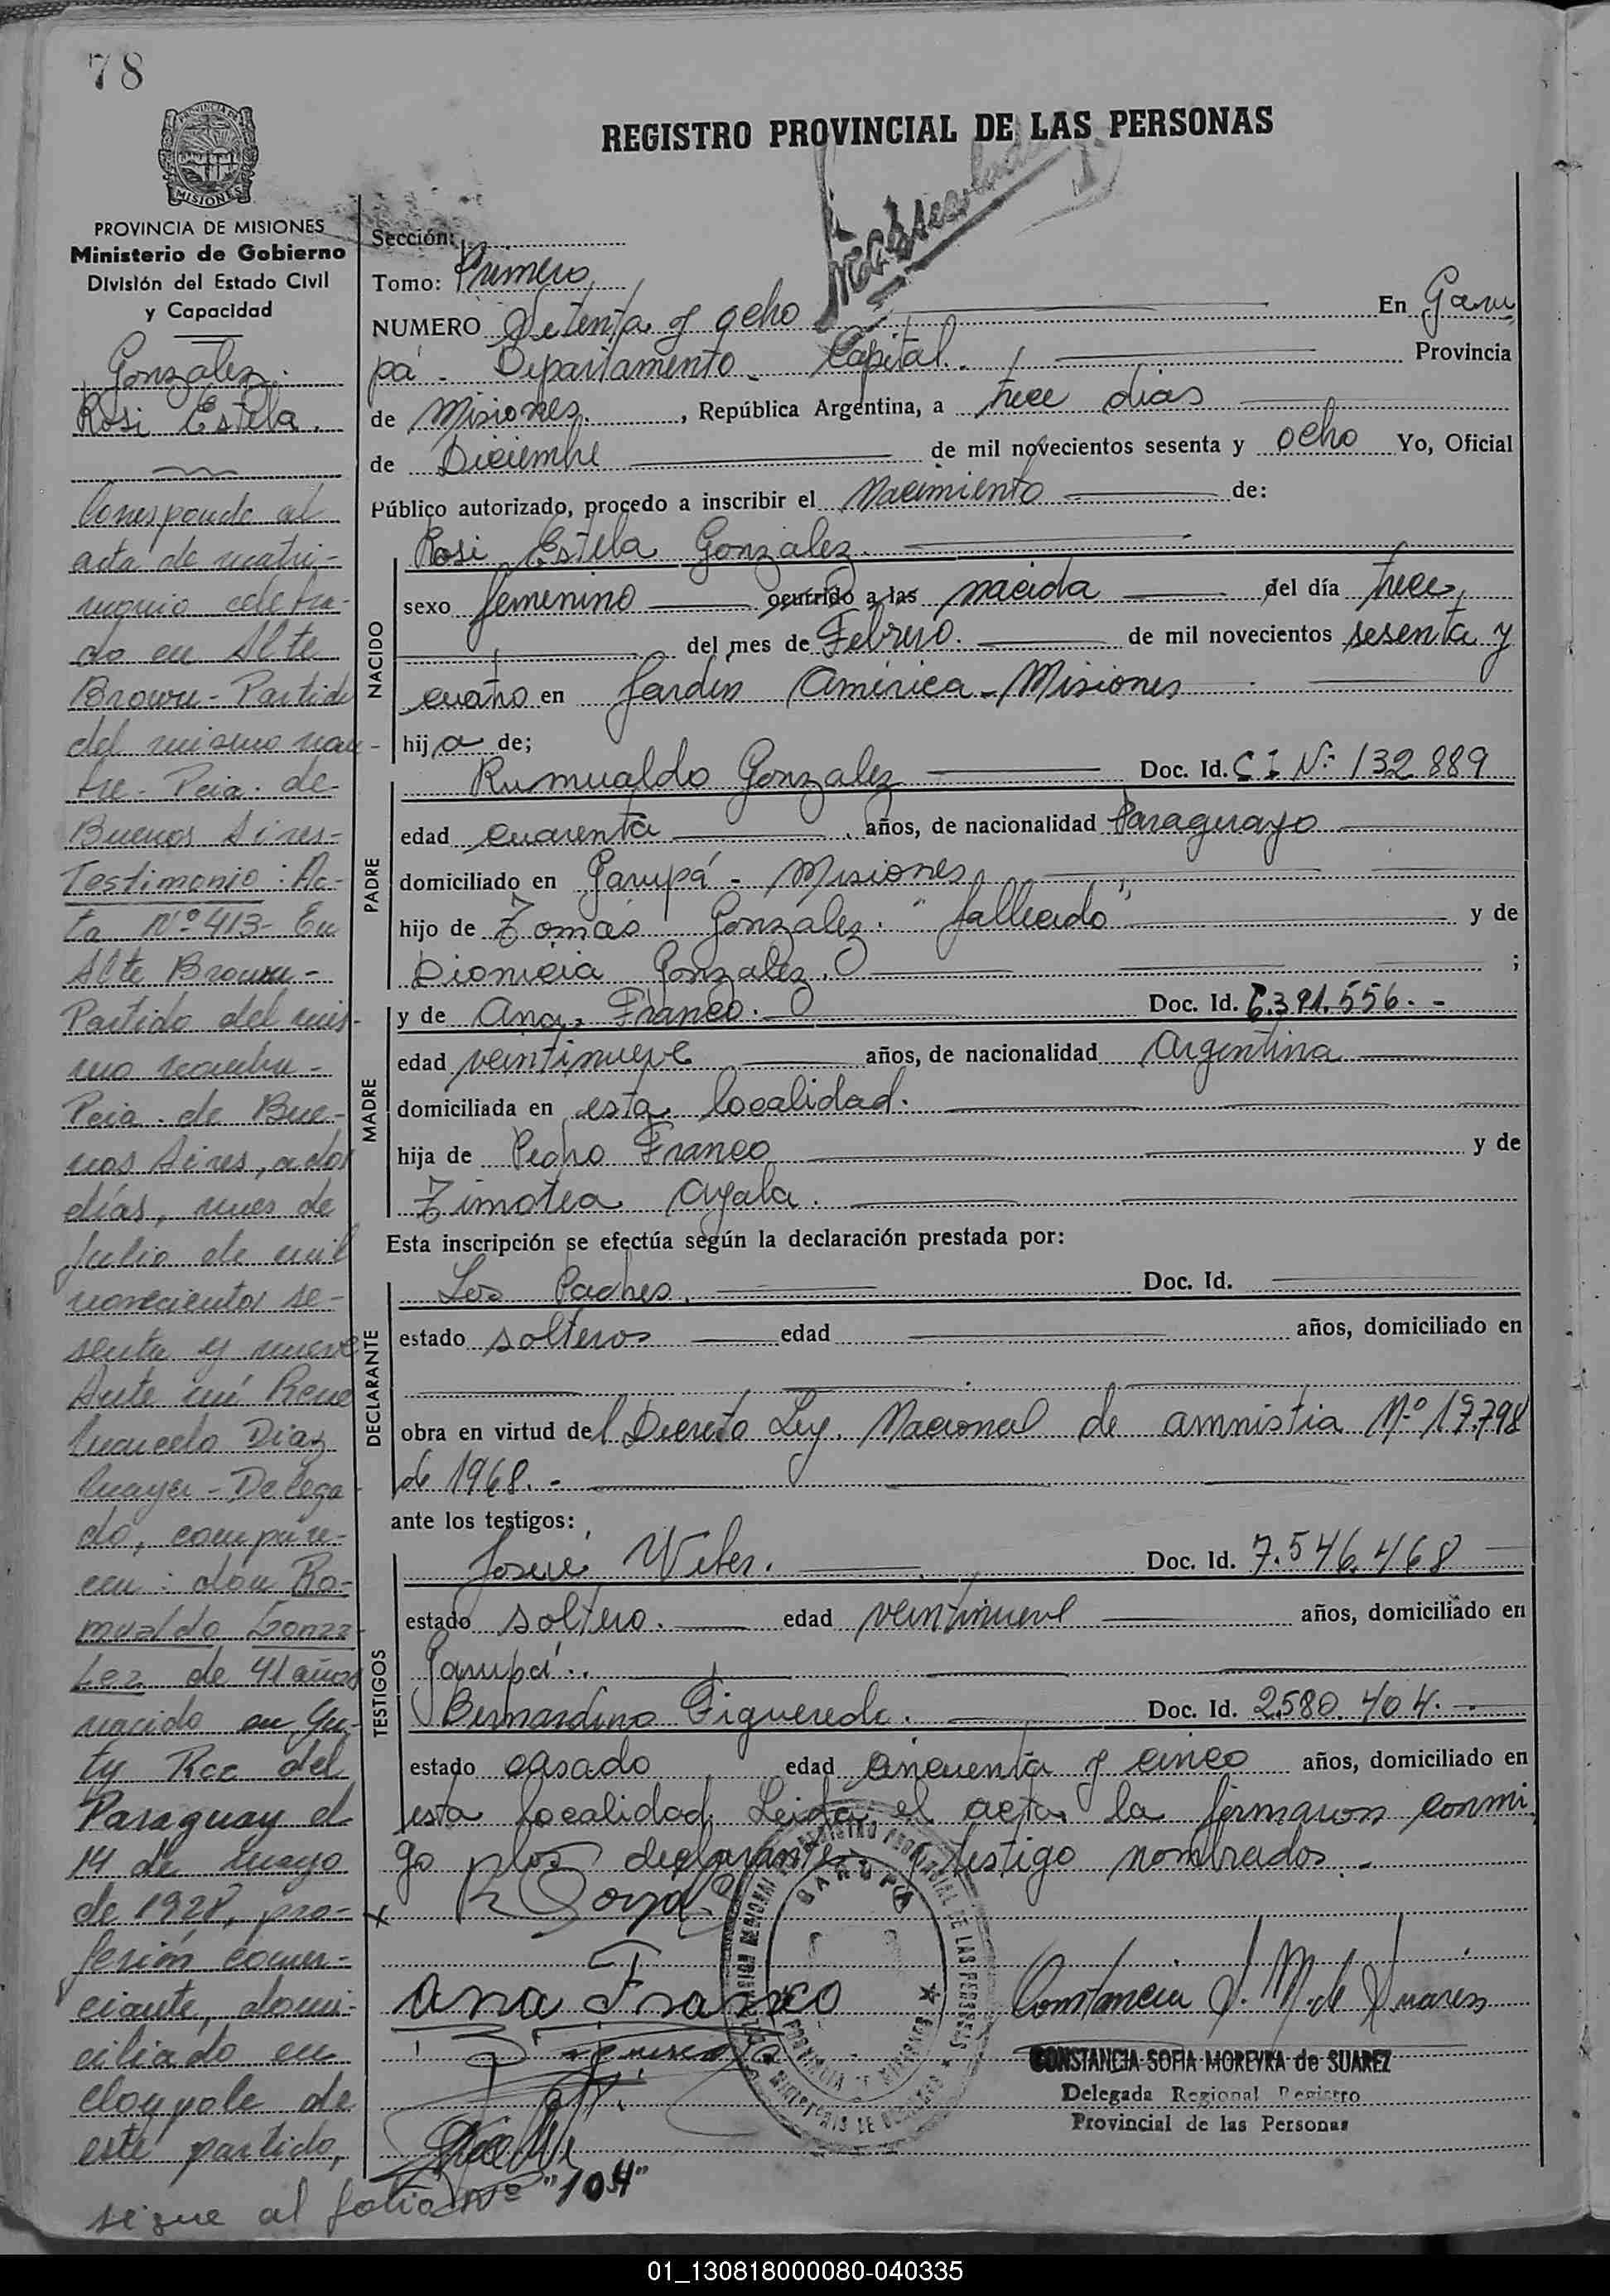 78
REGISTRO PROVINCIAL DE LAS PERSONAS
PROVINCIA DE MISIONES
Ministerio de Gobierno
División del Estado Civil
y Capacidad
Gonzalez.
Rosi Estela.
Corresponde al
acta de matri-
monio celebra-
do en Alte
Brown - Partido
del mismo nom-
bre - Pcia. de
Buenos Aires -
Testimonio: Ac-
ta Nº 413 - En
Alte Brown -
Partido del mis-
mo nombre -
Pcia. de Bue-
nos Aires, a dos
días, mes de
Julio de mil
novecientos se-
senta y nueve
Ante mí Rene
Marcelo Diaz
Mayer - Delega-
do, compare-
cen: don Ro-
mualdo Gonza-
lez de 41 años
nacido en Yu-
ty Rca del
Paraguay el
14 de mayo
de 1928, pro-
fesión comer-
ciante, domi-
ciliado en
Cloypole de
este partido,
sigue al folio Nº "104"
Sección:
Tomo: Primero
NUMERO Setenta y ocho En Garu
pá - Departamento - Capital. Provincia
de Misiones, República Argentina, a trece dias
de Diciembre de mil novecientos sesenta y ocho Yo, Oficial
Público autorizado, procedo a inscribir el Nacimiento de:
Rosi Estela Gonzalez.
NACIDO
sexo femenino ocurrido a las nacida del día trece
del mes de Febrero. de mil novecientos sesenta y
cuatro en Jardin América - Misiones
hija de;
PADRE
Rumualdo Gonzalez Doc. Id. C I Nº 132.889
edad cuarenta años, de nacionalidad Paraguayo
domiciliado en Garupá - Misiones
hijo de Tomás Gonzalez. "fallecido" y de
Dionicia Gonzalez. ;
MADRE
y de Ana Franco. Doc. Id. 6.391.556.-
edad veintinueve años, de nacionalidad Argentina
domiciliada en esta localidad.
hija de Pedro Franco y de
Timotea Ayala.
Esta inscripción se efectúa según la declaración prestada por:
DECLARANTE
Los Padres. Doc. Id.
estado solteros edad años, domiciliado en
obra en virtud del Decreto Ley Nacional de amnistia Nº 17.798
de 1968.-
ante los testigos:
TESTIGOS
Josué Weber. Doc. Id. 7.546.468
estado soltero. edad veintinueve años, domiciliado en
Garupá.
Bernardino Figueredo. Doc. Id. 2580.404.-
estado casado edad cincuenta y cinco años, domiciliado en
esta localidad. Leida el acta la firmaron conmi
go plos declarantes y testigo nombrados.-
Ana Franco
Constancia S. M. de Suarez
CONSTANCIA SOFIA MOREYRA de SUAREZ
Delegada Regional Registro
Provincial de las Personas
GARUPA
01_130818000080-040335